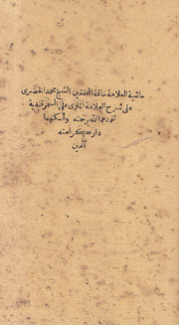 حاشية العلامة خاتمة المحققين الشيخ محمد الخضرى
على شرح العلامة الملوى على السمرقندية
تغمده الله برحمته وأسكنهما
دار كرامته
آمين